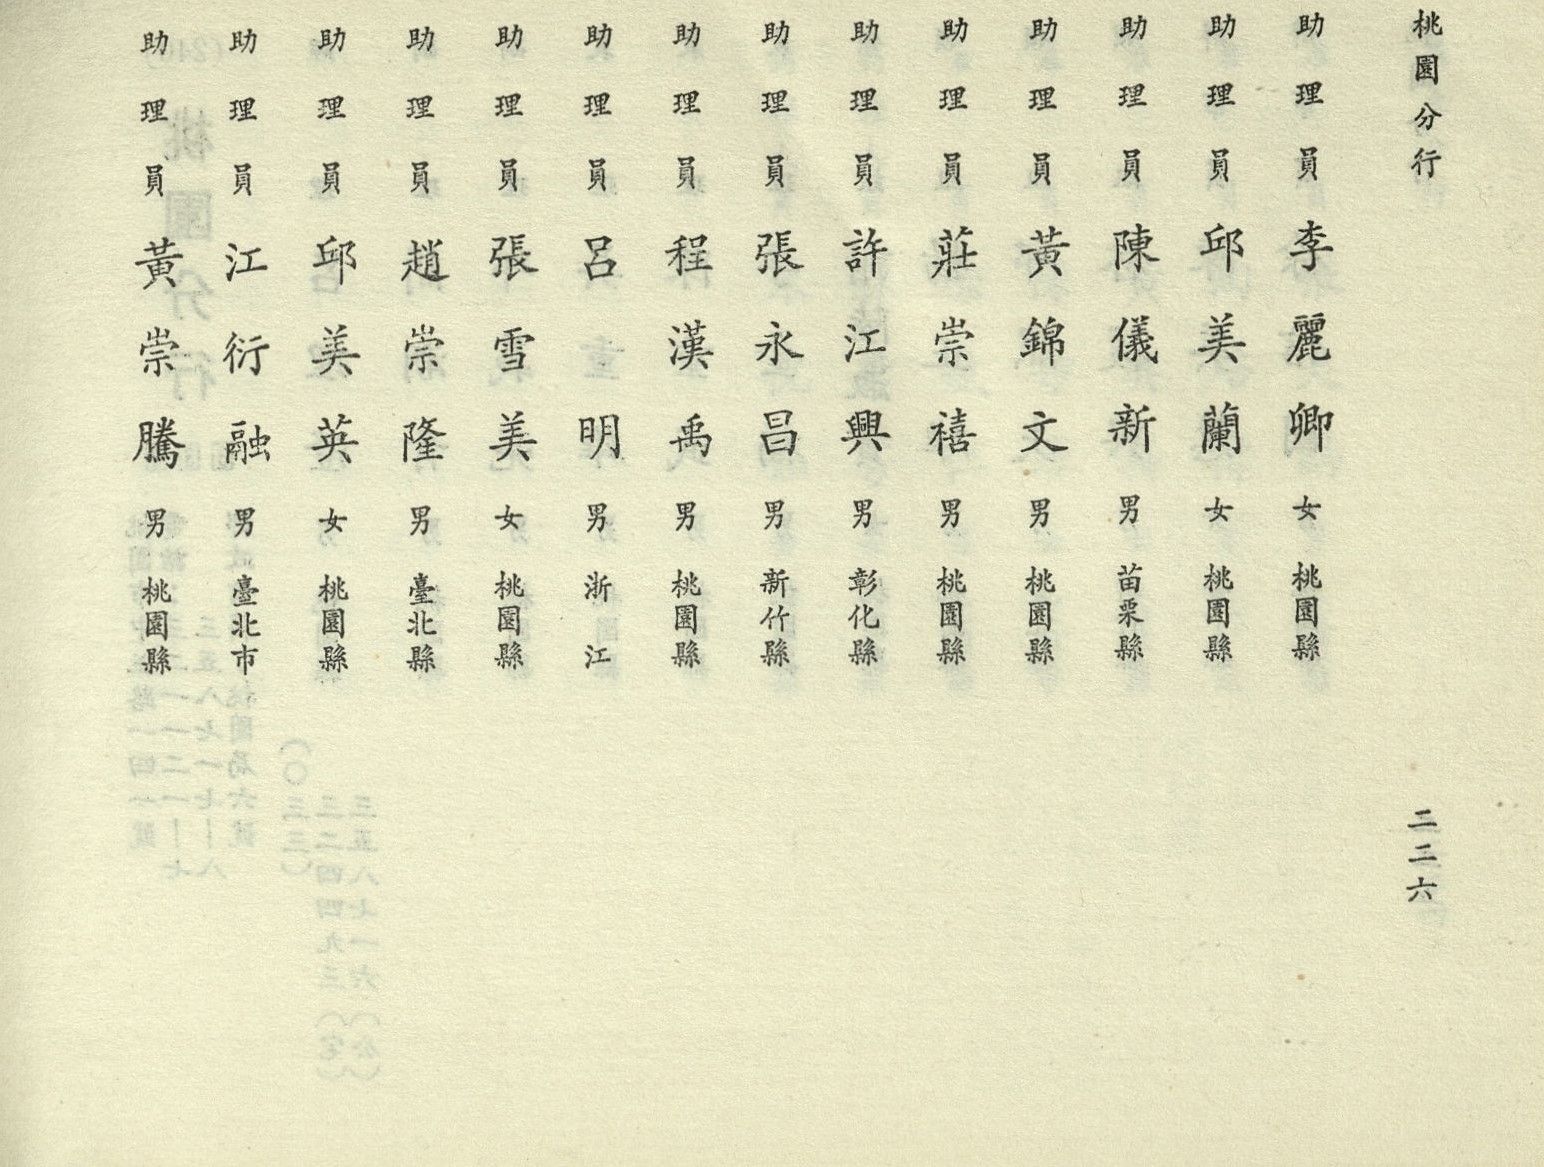 桃園分行
二二六
助理員 李麗卿 女 桃園縣
助理員 邱美蘭 女 桃園縣
助理員 陳儀新 男 苗栗縣
助理員 黃錦文 男 桃園縣
助理員 莊崇禧 男 桃園縣
助理員 許江興 男 彰化縣
助理員 張永昌 男 新竹縣
助理員 程漢禹 男 桃園縣
助理員 呂明 男 浙江
助理員 張雪美 女 桃園縣
助理員 趙崇隆 男 臺北縣
助理員 邱美英 女 桃園縣
助理員 江衍融 男 臺北市
助理員 黃崇騰 男 桃園縣